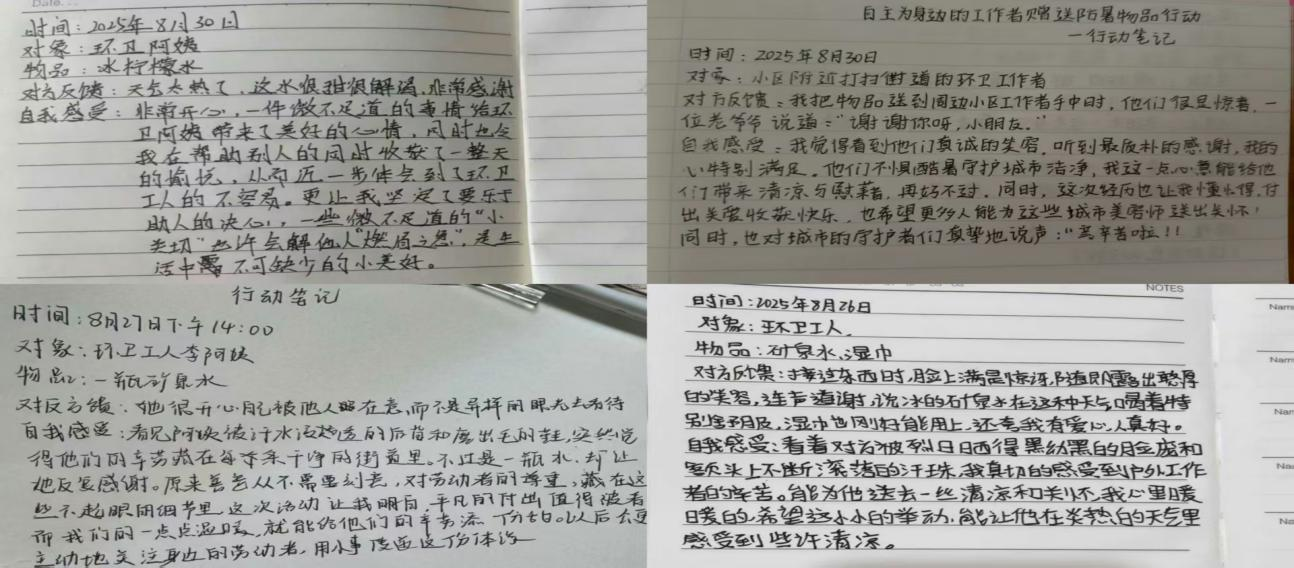 Date...
时间：2025年8月30日
对象：环卫阿姨
物品：冰柠檬水
对方反馈：天气太热了，这水很甜很解渴，非常感谢
自我感受：非常开心，一件微不足道的事情给环
卫阿姨带来了美好的心情，同时也令
我在帮助别人的同时收获了一整天
的愉悦，从而近一步体会到了环卫
工人的不容易。更让我坚定了要乐于
助人的决心，一些微不足道的“小
关切”也许会解他人“燃眉之急”，是生
活中不可缺少的小美好。
自主为身边的工作者赠送防暑物品行动
—行动笔记
时间：2025年8月30日
对象：小区附近打扫街道的环卫工作者
对方反馈：我把物品送到周边小区工作者手中时，他们很是惊喜，一
位老爷爷说道：“谢谢你呀，小朋友。”
自我感受：我觉得看到他们真诚的笑容，听到最质朴的感谢，我的
心特别满足。他们不惧酷暑守护城市洁净，我这一点心意能给他
们带来清凉与慰藉，再好不过，同时，这次经历也让我懂得，付
出关爱收获快乐，也希望更多人能为这些城市美容师送出关怀！
同时，也对城市的守护者们真挚地说声：“辛苦啦！！
行动笔记
时间：8月27日下午14:00
对象：环卫工人李阿姨
物品：一瓶矿泉水
对反方馈：她很开心自己被他人在意，而不是异样的眼光去看待
自我感受：看见阿姨被汗水浸透的后背和磨出毛的鞋，突然觉
得他们的辛劳藏在每条干净的街道里。不过是一瓶水，却让
她反复感谢。原来善意从不需要刻意，对劳动者的尊重，藏在这
些不起眼的细节里。这次活动让我明白，平凡的付出值得被看
而我们的一点点温暖，就能给他们的辛劳添一份甜。以后会更
主动地关注身边的劳动者，用小事传递这份体谅
NOTES
时间：2025年8月26日
对象：环卫工人
物品：矿泉水，湿巾
对方反馈：接过东西时，脸上满是惊讶，随即露出憨厚
的笑容，连声道谢，说冰的矿泉水在这种天气喝着特
别舒服，湿巾也刚好能用上，还夸我有爱心，人真好。
自我感受：看着对方被烈日晒得黝黑的脸庞和
额头上不断滚落的汗珠，我真切的感受到户外工作
者的辛苦。能为他送去一些清凉和关怀，我心里暖
暖的，希望这小小的举动，能让他在炎热的天气里
感受到些许清凉。
Nam
Nam
Nam
Na
Na